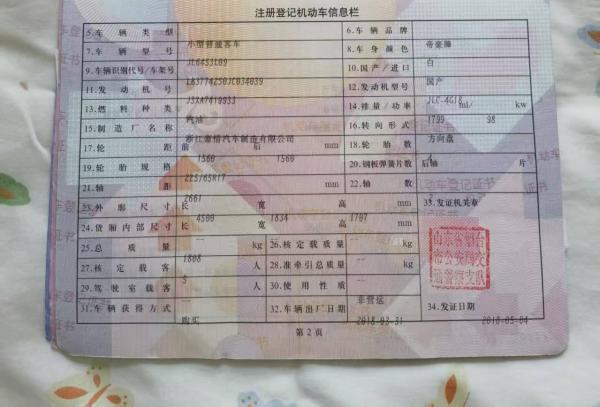 注册登记机动车信息栏
5.车辆类型 小型普通客车 6.车辆品牌 帝豪牌
7.车辆型号 JL6453L09 8.车身颜色 白
9.车辆识别代号/车架号 10.国产/进口 国产
11.发动机号 J3XA7419933 12.发动机型号 JLC-4G18
13.燃料种类 汽油 14.排量/功率 1799 ml/ 98 kw
15.制造厂名称 浙江豪情汽车制造有限公司 16.转向形式 方向盘
17.轮距 前 1560 后 1560 mm 18.轮胎数 4
19.轮胎规格 225/65R17 20.钢板弹簧片数 后轴 片
21.轴距 2661 mm 22.轴数
23.外廓尺寸 长 4500 宽 1834 高 1707 mm 33.发证机关章
24.货厢内部尺寸 长 -- 宽 -- 高 -- mm
25.总质量 1808 kg 26.核定载质量 -- kg
27.核定载客 5 人 28.准牵引总质量 -- kg
29.驾驶室载客 -- 人 30.使用性质 非营运
31.车辆获得方式 购买 32.车辆出厂日期 2018-03-31 34.发证日期 2018-05-04
第2页